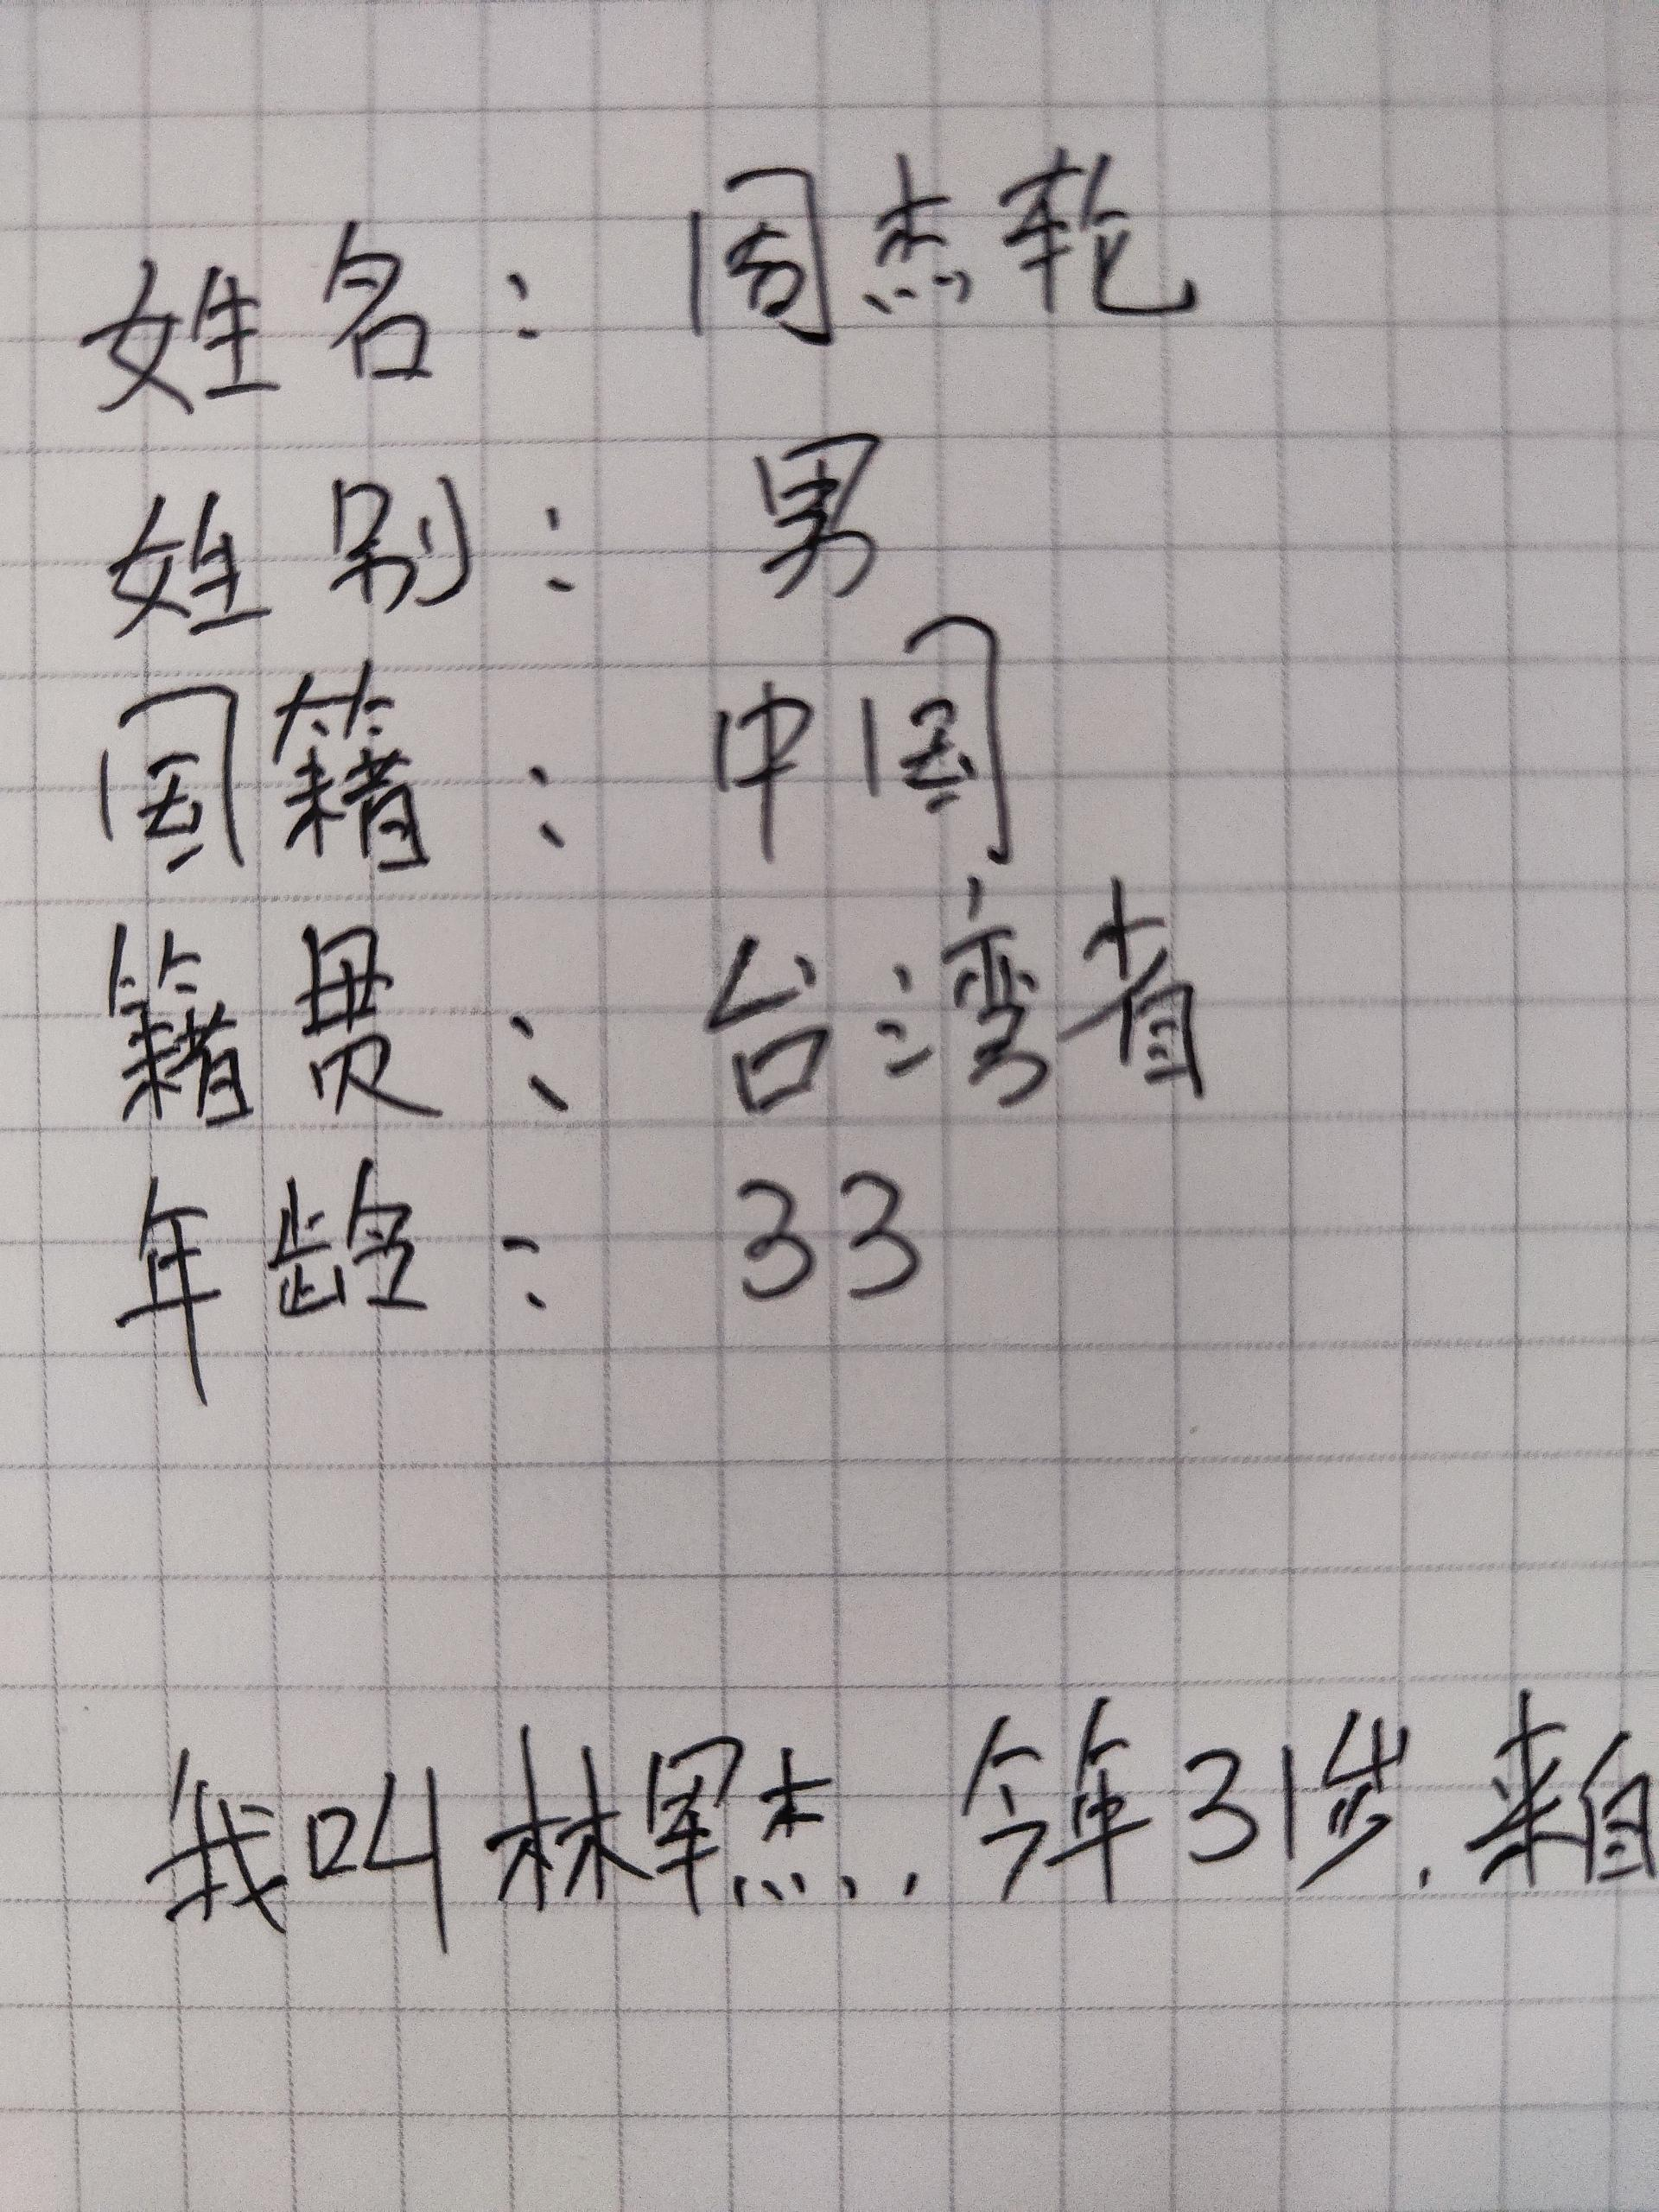 姓名：周杰乾
姓别：男
国籍：中国
籍贯：台湾省
年龄：33
我叫林军杰，今年31岁，来自